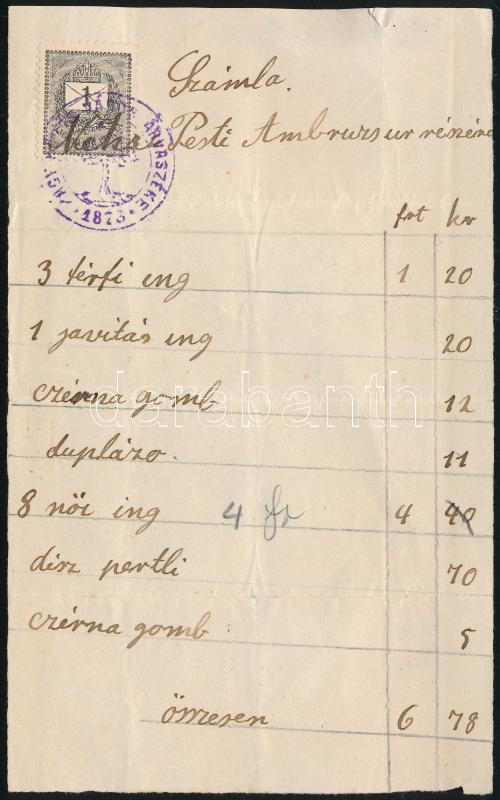 Számla.
Néhai Pesti Ambruzs ur részére
ÁRVASZÉKE
1873
1
frt kr
3 férfi ing 1 20
1 javitás ing 20
czérna gomb 12
duplázo. 11
8 női ing 4 fr 4 40
disz pertli 70
czérna gomb 5
összesen 6 78
darabanth